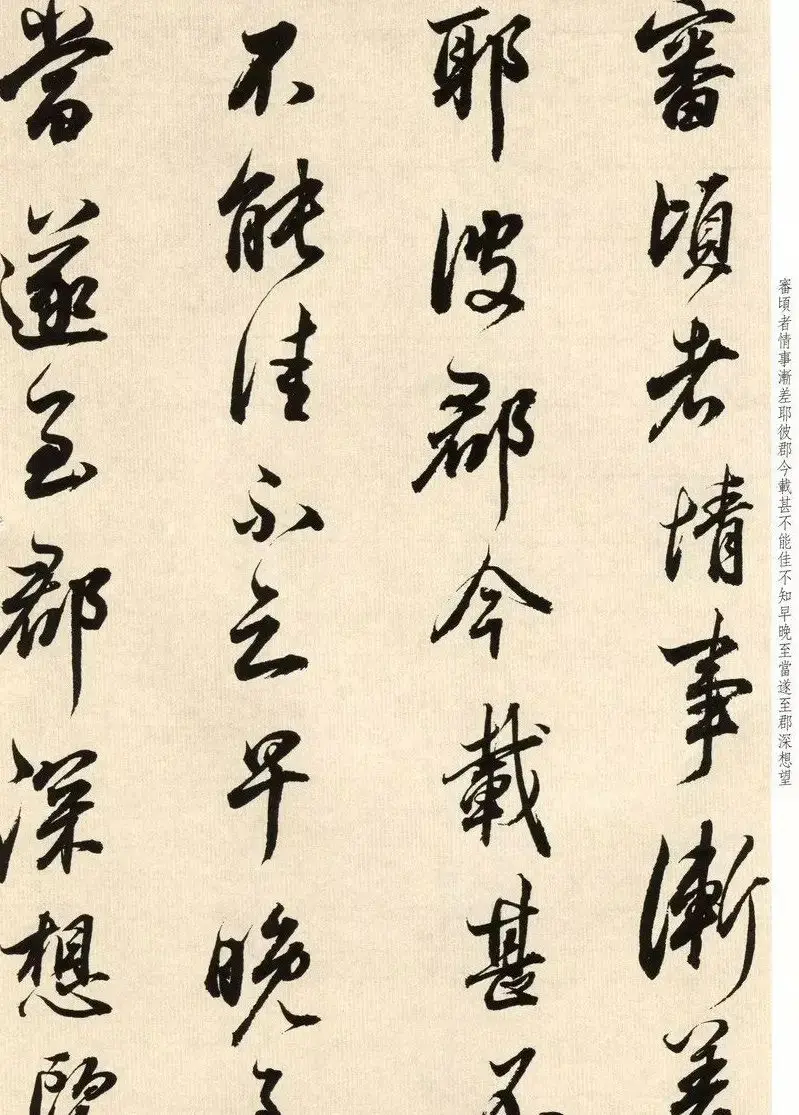 審頃者情事漸差耶彼郡今載甚不能佳不知早晚至當遂至郡深想望
審頃者情事漸差
耶彼郡今載甚不
不能佳不知早晚至
當遂至郡深想望